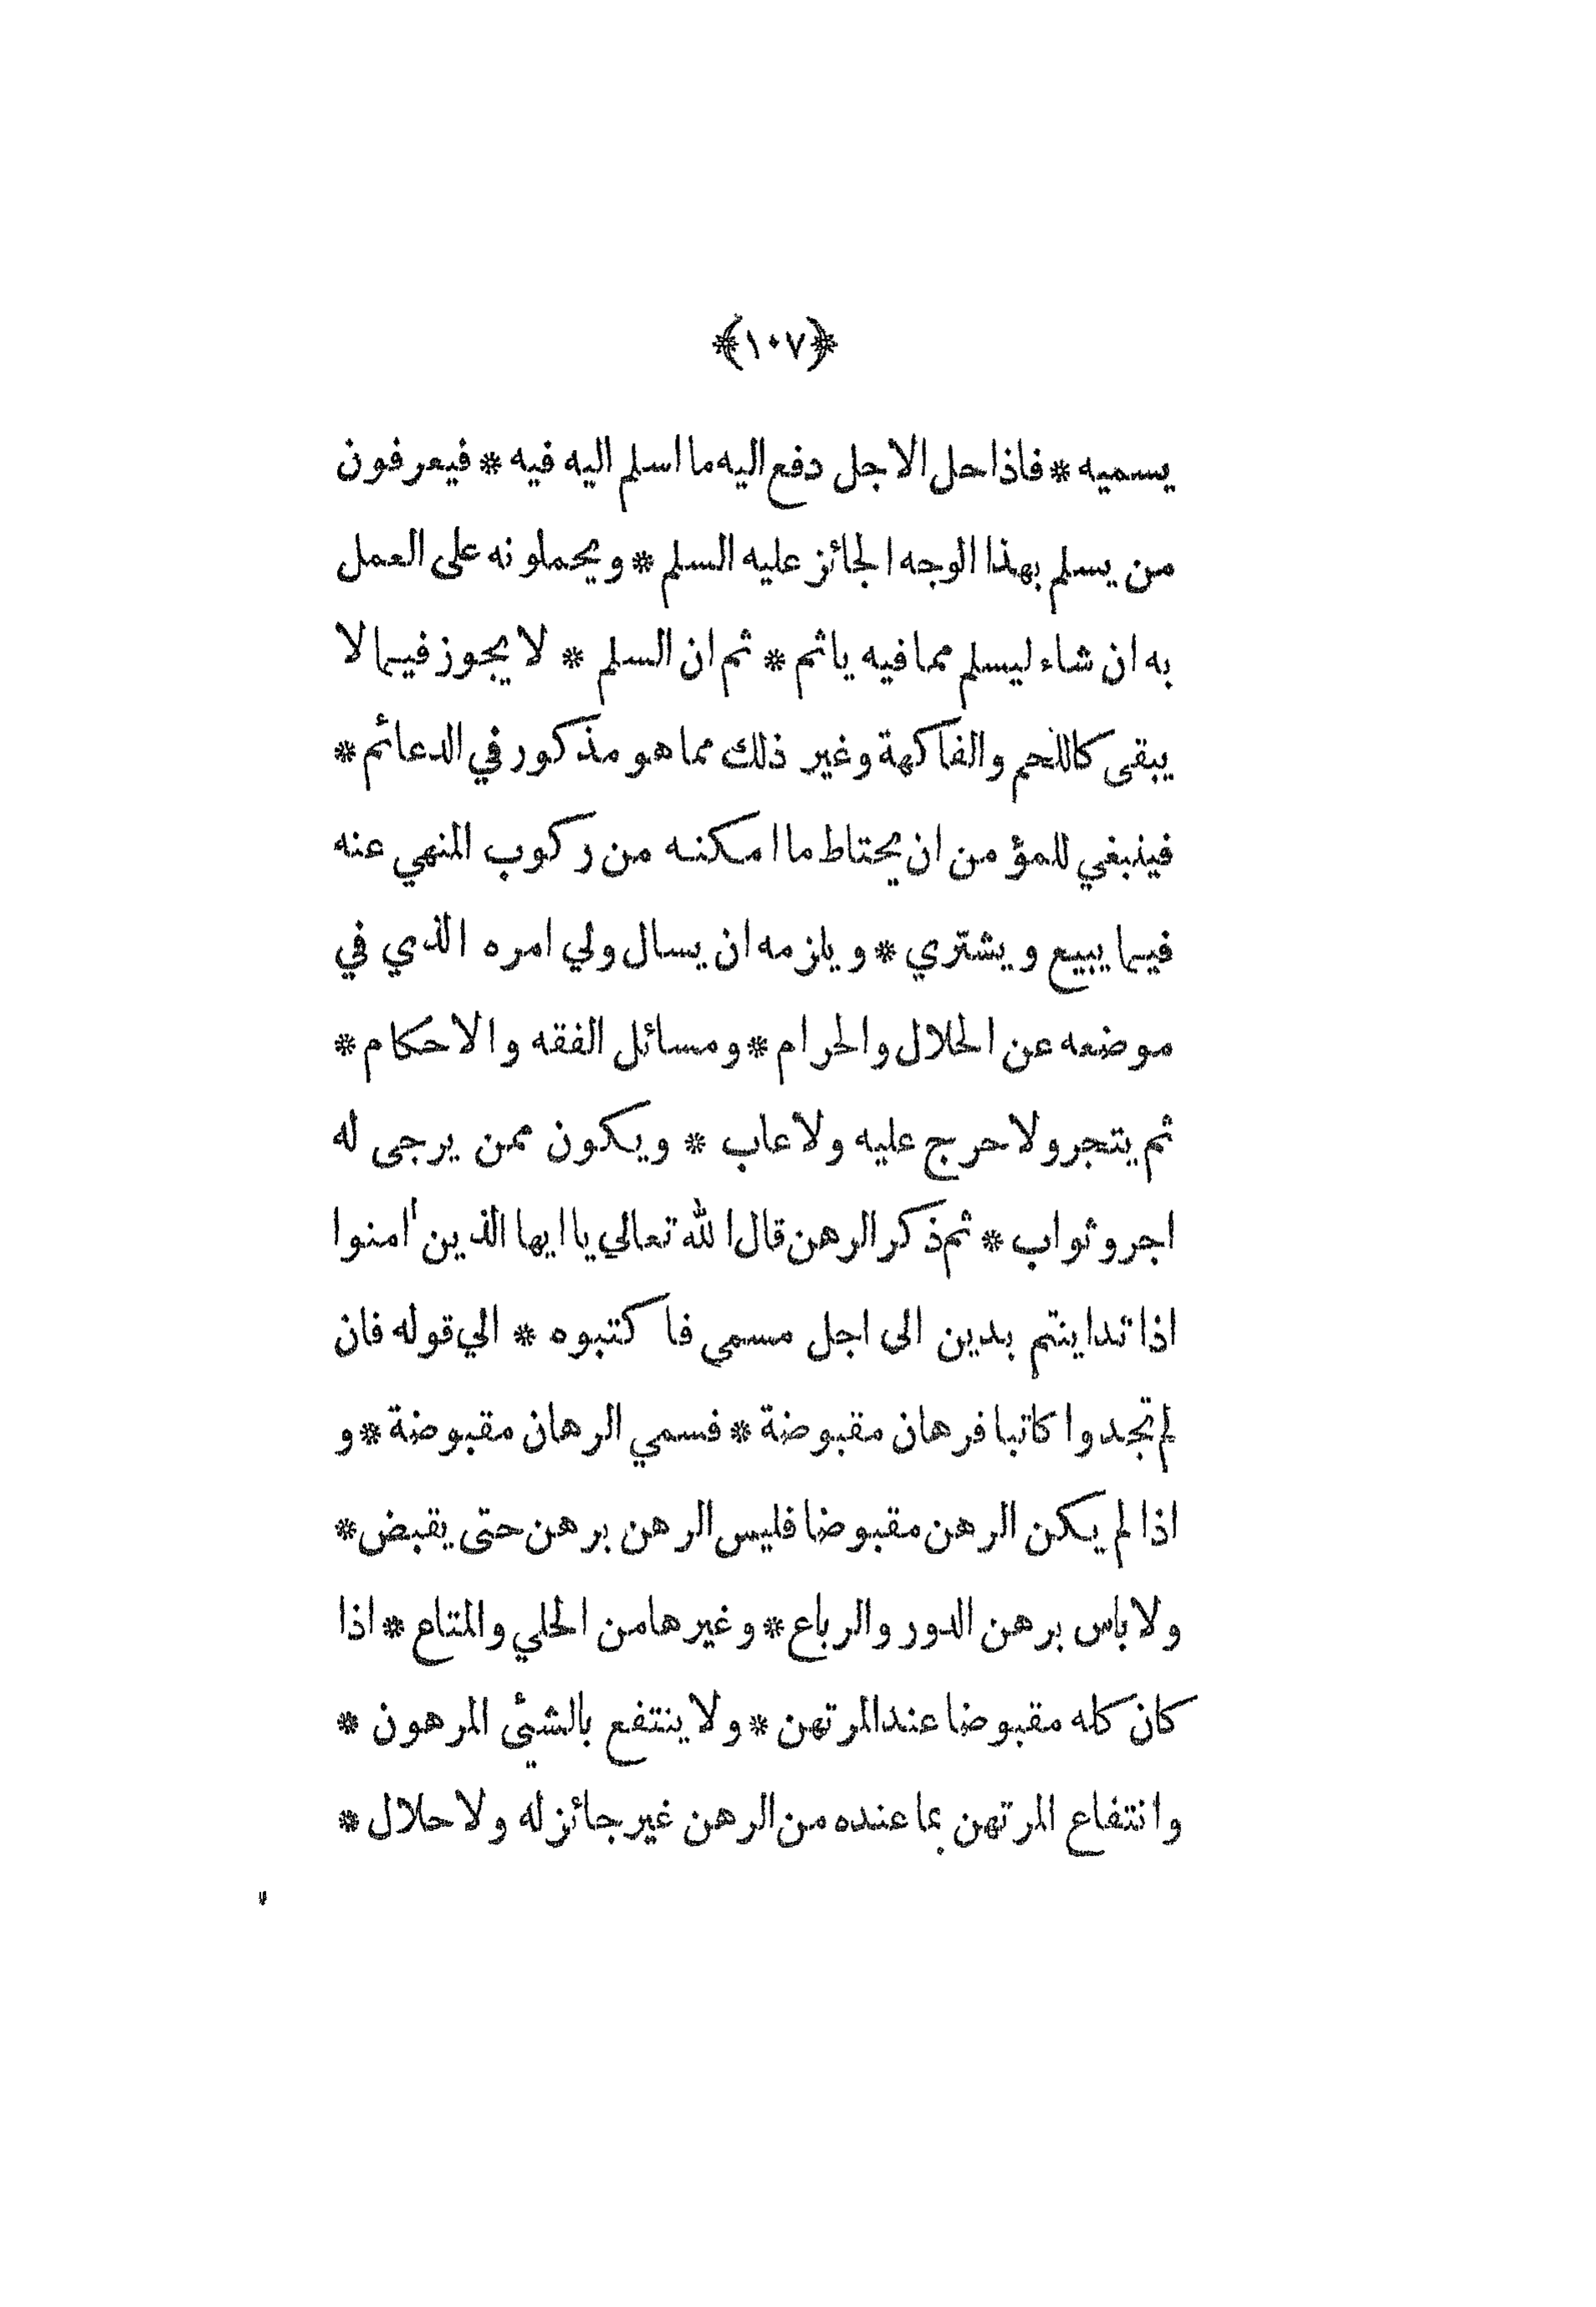 ﴿١٠٧﴾
يسميه * فاذا حل الاجل دفع اليه ما اسلم اليه فيه * فيعرفون
من يسلم بهذا الوجه الجائز عليه السلم * ويحملونه على العمل
به ان شاء ليسلم مما فيه ياثم * ثم ان السلم * لا يجوز فيما لا
يبقى كاللحم والفاكهة وغير ذلك مما هو مذكور في الدعائم *
فينبغي للمؤمن ان يحتاط ما امكنه من ركوب المنهي عنه
فيما يبيع ويشتري * ويلزمه ان يسال ولي امره الذي في
موضعه عن الحلال والحرام * ومسائل الفقه والاحكام *
ثم يتجر ولا حرج عليه ولا عاب * ويكون ممن يرجى له
اجر وثواب * ثم ذكر الرهن قال الله تعالي يا ايها الذين اٰمنوا
اذا تداينتم بدين الى اجل مسمي فاكتبوه * الي قوله فان
لم تجدوا كاتبا فرهان مقبوضة * فسمي الرهان مقبوضة * و
اذا لم يكن الرهن مقبوضا فليس الرهن برهن حتى يقبض *
ولا باس برهن الدور والرباع * وغيرها من الحلي والمتاع * اذا
كان كله مقبوضا عند المرتهن * ولا ينتفع بالشيئ المرهون *
وانتفاع المرتهن بما عنده من الرهن غير جائز له ولا حلال *